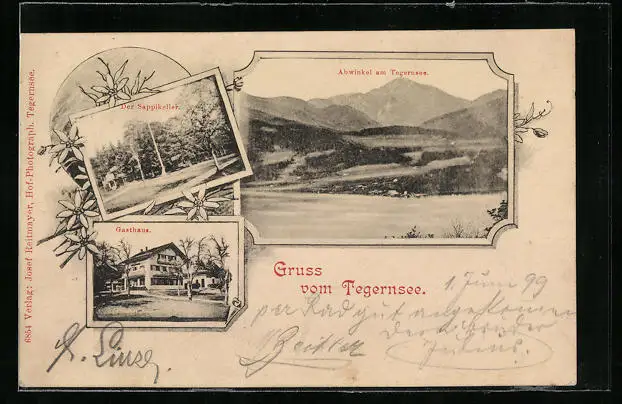 6864 Verlag: Josef Reitmayer, Hof-Photograph. Tegernsee.
Der Sappikeller.
Abwinkel am Tegernsee.
Gasthaus.
Gruss
vom Tegernsee.
1. Juni 99
per Rad gut angekommen